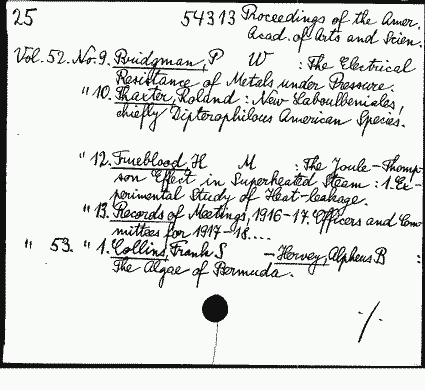 25 54313 Proceedings of the Amer.
Acad. of Arts and Scien.
Vol. 52. No. 9. Bridgman, P W : The Electrical
Resistance of Metals under Pressure.
" 10. Thaxter, Roland : New Laboulbeniales,
chiefly Dipterophilous American Species.
" 12. Trueblood, H M : The Joule-Thomp-
son Effect in Superheated Steam : 1. Ex-
perimental Study of Heat-leakage.
" 13. Records of Meetings, 1916-17. Officers and Com
mittees for 1917-18....
" 53. " 1. Collins, Frank S - Hervey, Alpheus B :
The Algae of Bermuda.
·/.